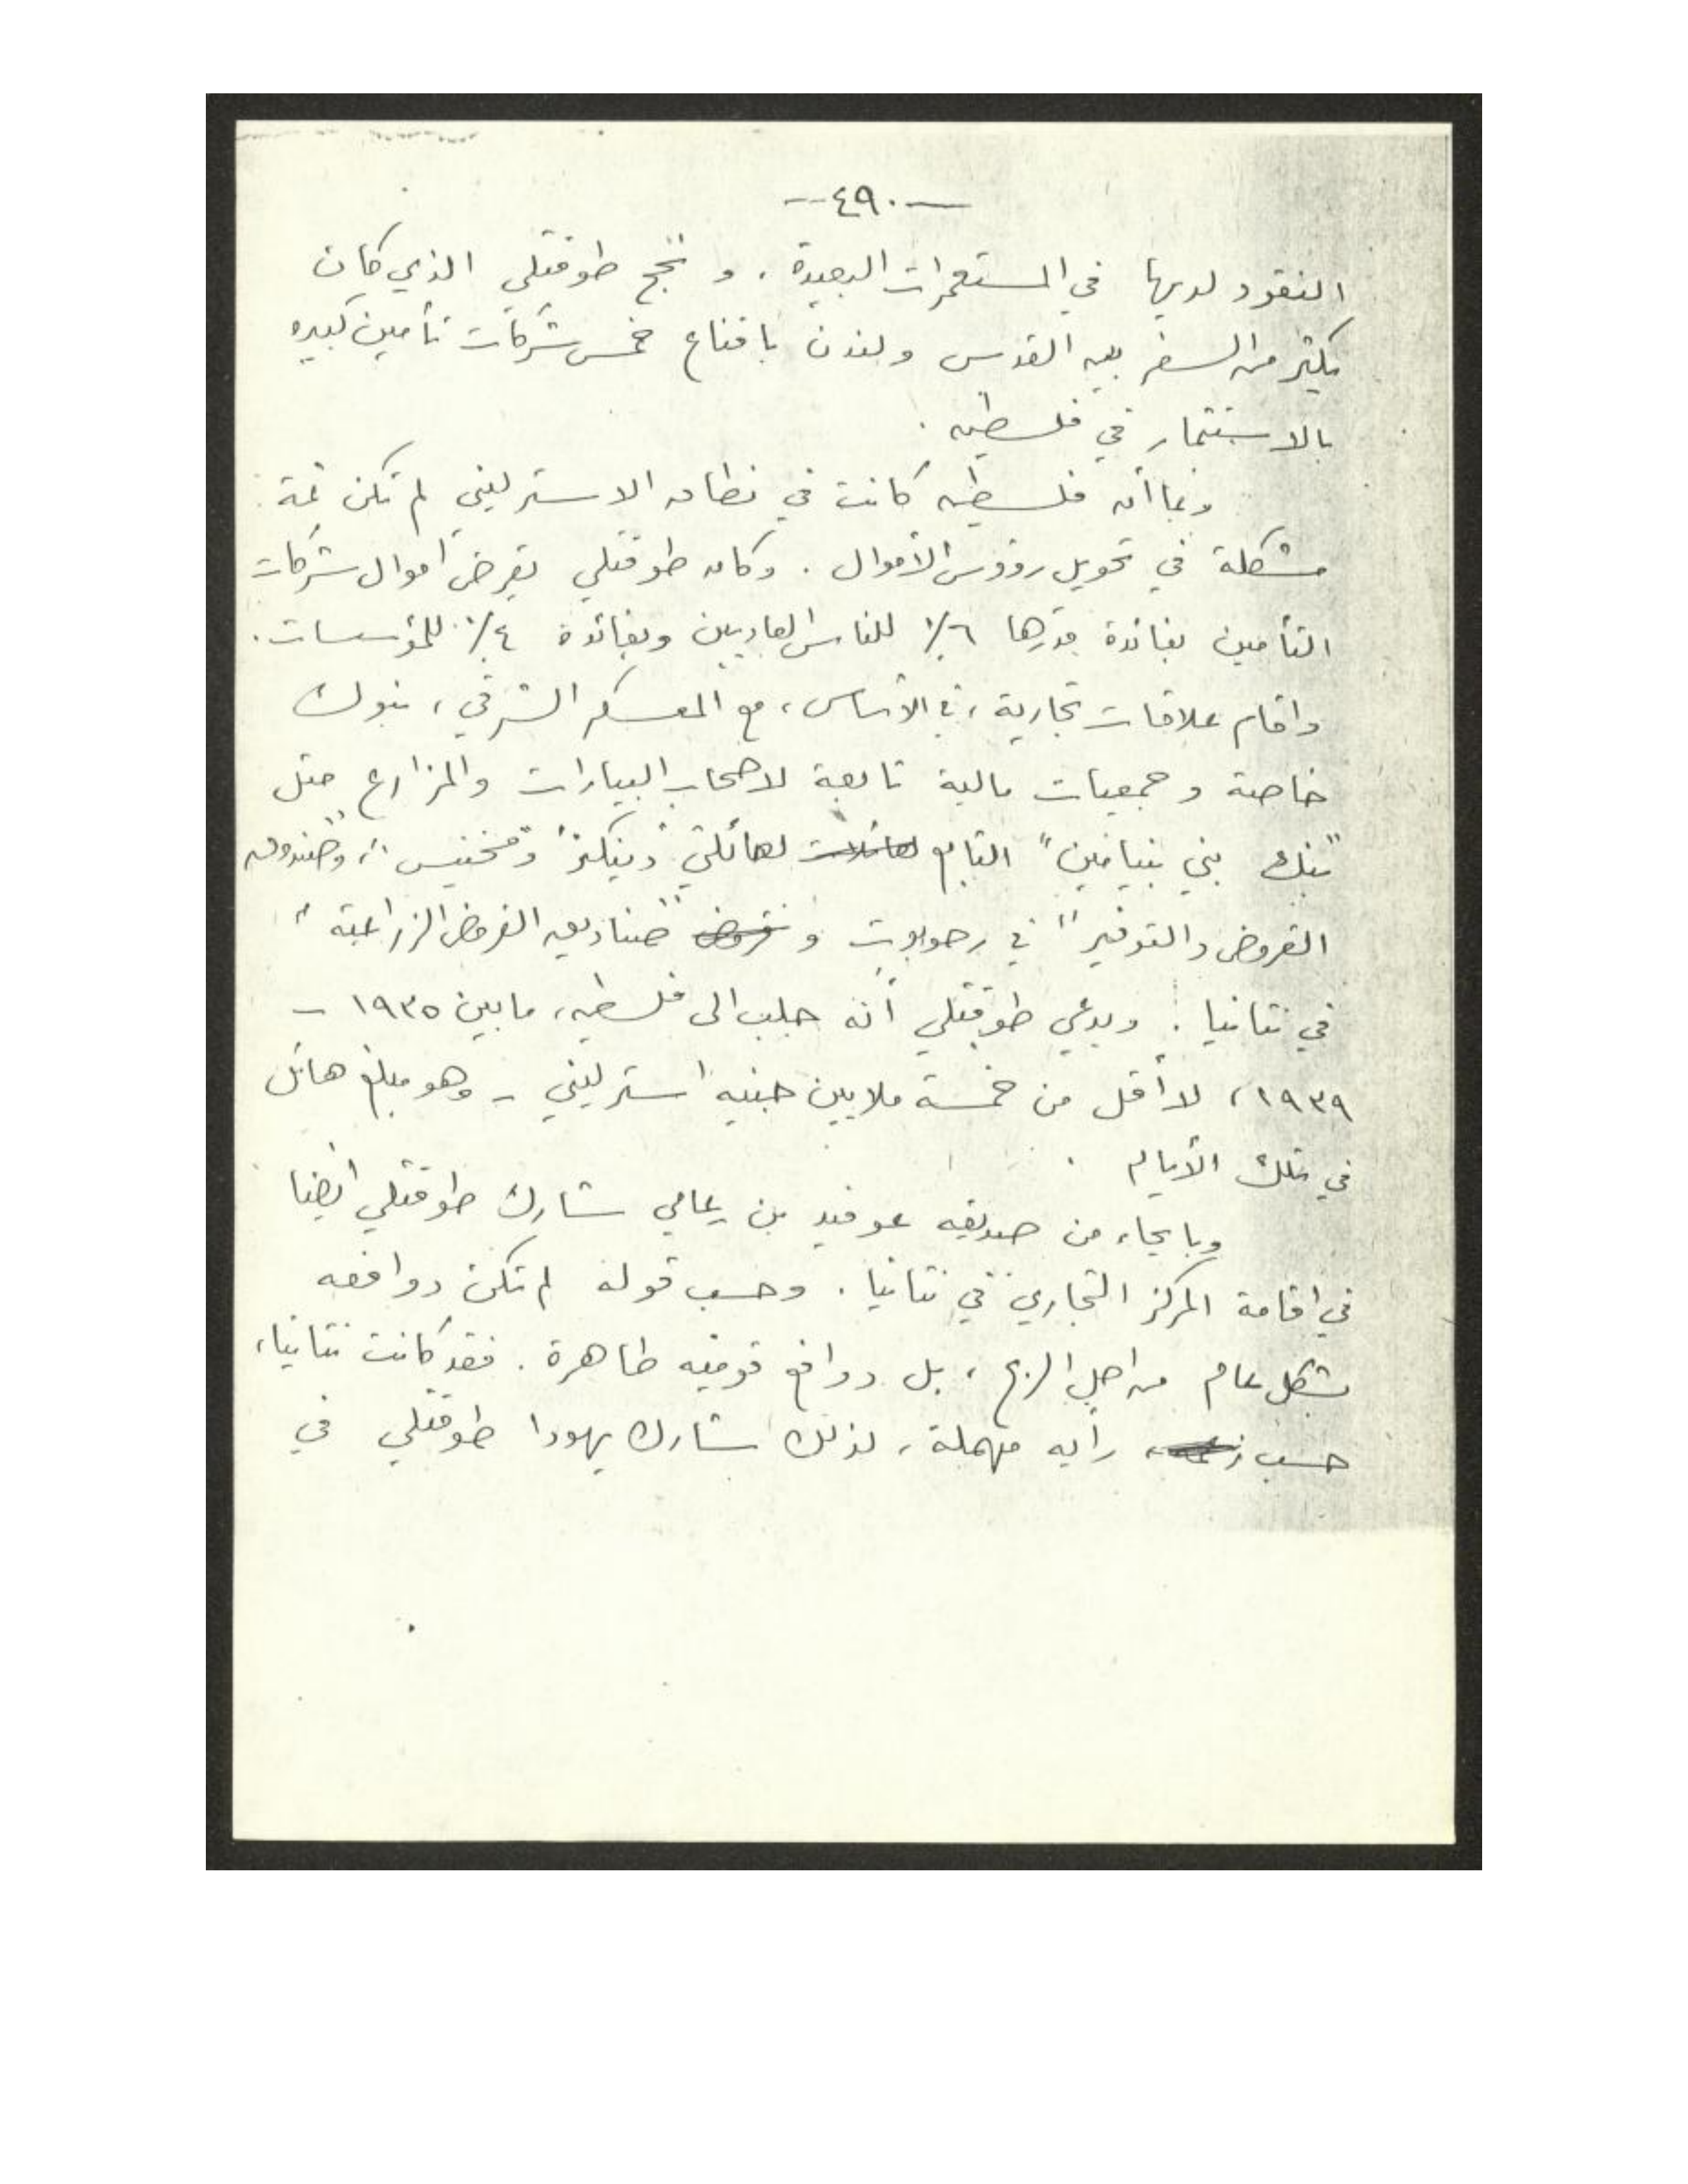 — ٤٩٠ —
النقود لديها في المستعمرات البعيدة . و نجح طوقتلي الذي كان
يكثر من السفر بين القدس ولندن باقناع خمس شركات تأمين كبيره
بالاستثمار في فلسطين .
وبما أن فلسطين كانت في نطاق الاسترليني لم تكن ثمة
مشكلة في تحويل رؤوس الأموال . وكان طوقتلي يقرض أموال شركات
التأمين بفائدة قدرها ٦٪ للناس العاديين وبفائدة ٤٪ للمؤسسات .
واقام علاقات تجارية ، في الأساس ، مع المعسكر الشرقي ، بنوك
خاصة و جمعيات مالية تابعة لاصحاب البيارات والمزارع مثل
"بنك بني بنيامين" التابع لعائلات لعائلتي "دينكنز" و"مخنيس" ، و"صندوق
القروض والتوفير" في رحوبوت و قروض "صناديق القروض الزراعية"
في نتانيا . ويدعي طوقتلي أنه جلب الى فلسطين ، ما بين ١٩٣٥ -
١٩٣٩ ، لا أقل من خمسة ملايين جنيه استرليني - وهو مبلغ هائل
في تلك الأيام .
وبايحاء من صديقه عوفيد بن يعامي شارك طوقتلي ايضا
في اقامة المركز التجاري في نتانيا . وحسب قوله لم تكن دوافعه
بشكل عام من اجل الربح ، بل دوافع قوميه طاهرة . فقد كانت نتانيا ،
حسب زعمه ، رأيه مهملة ، لذلك شارك يهودا طوقتلي في